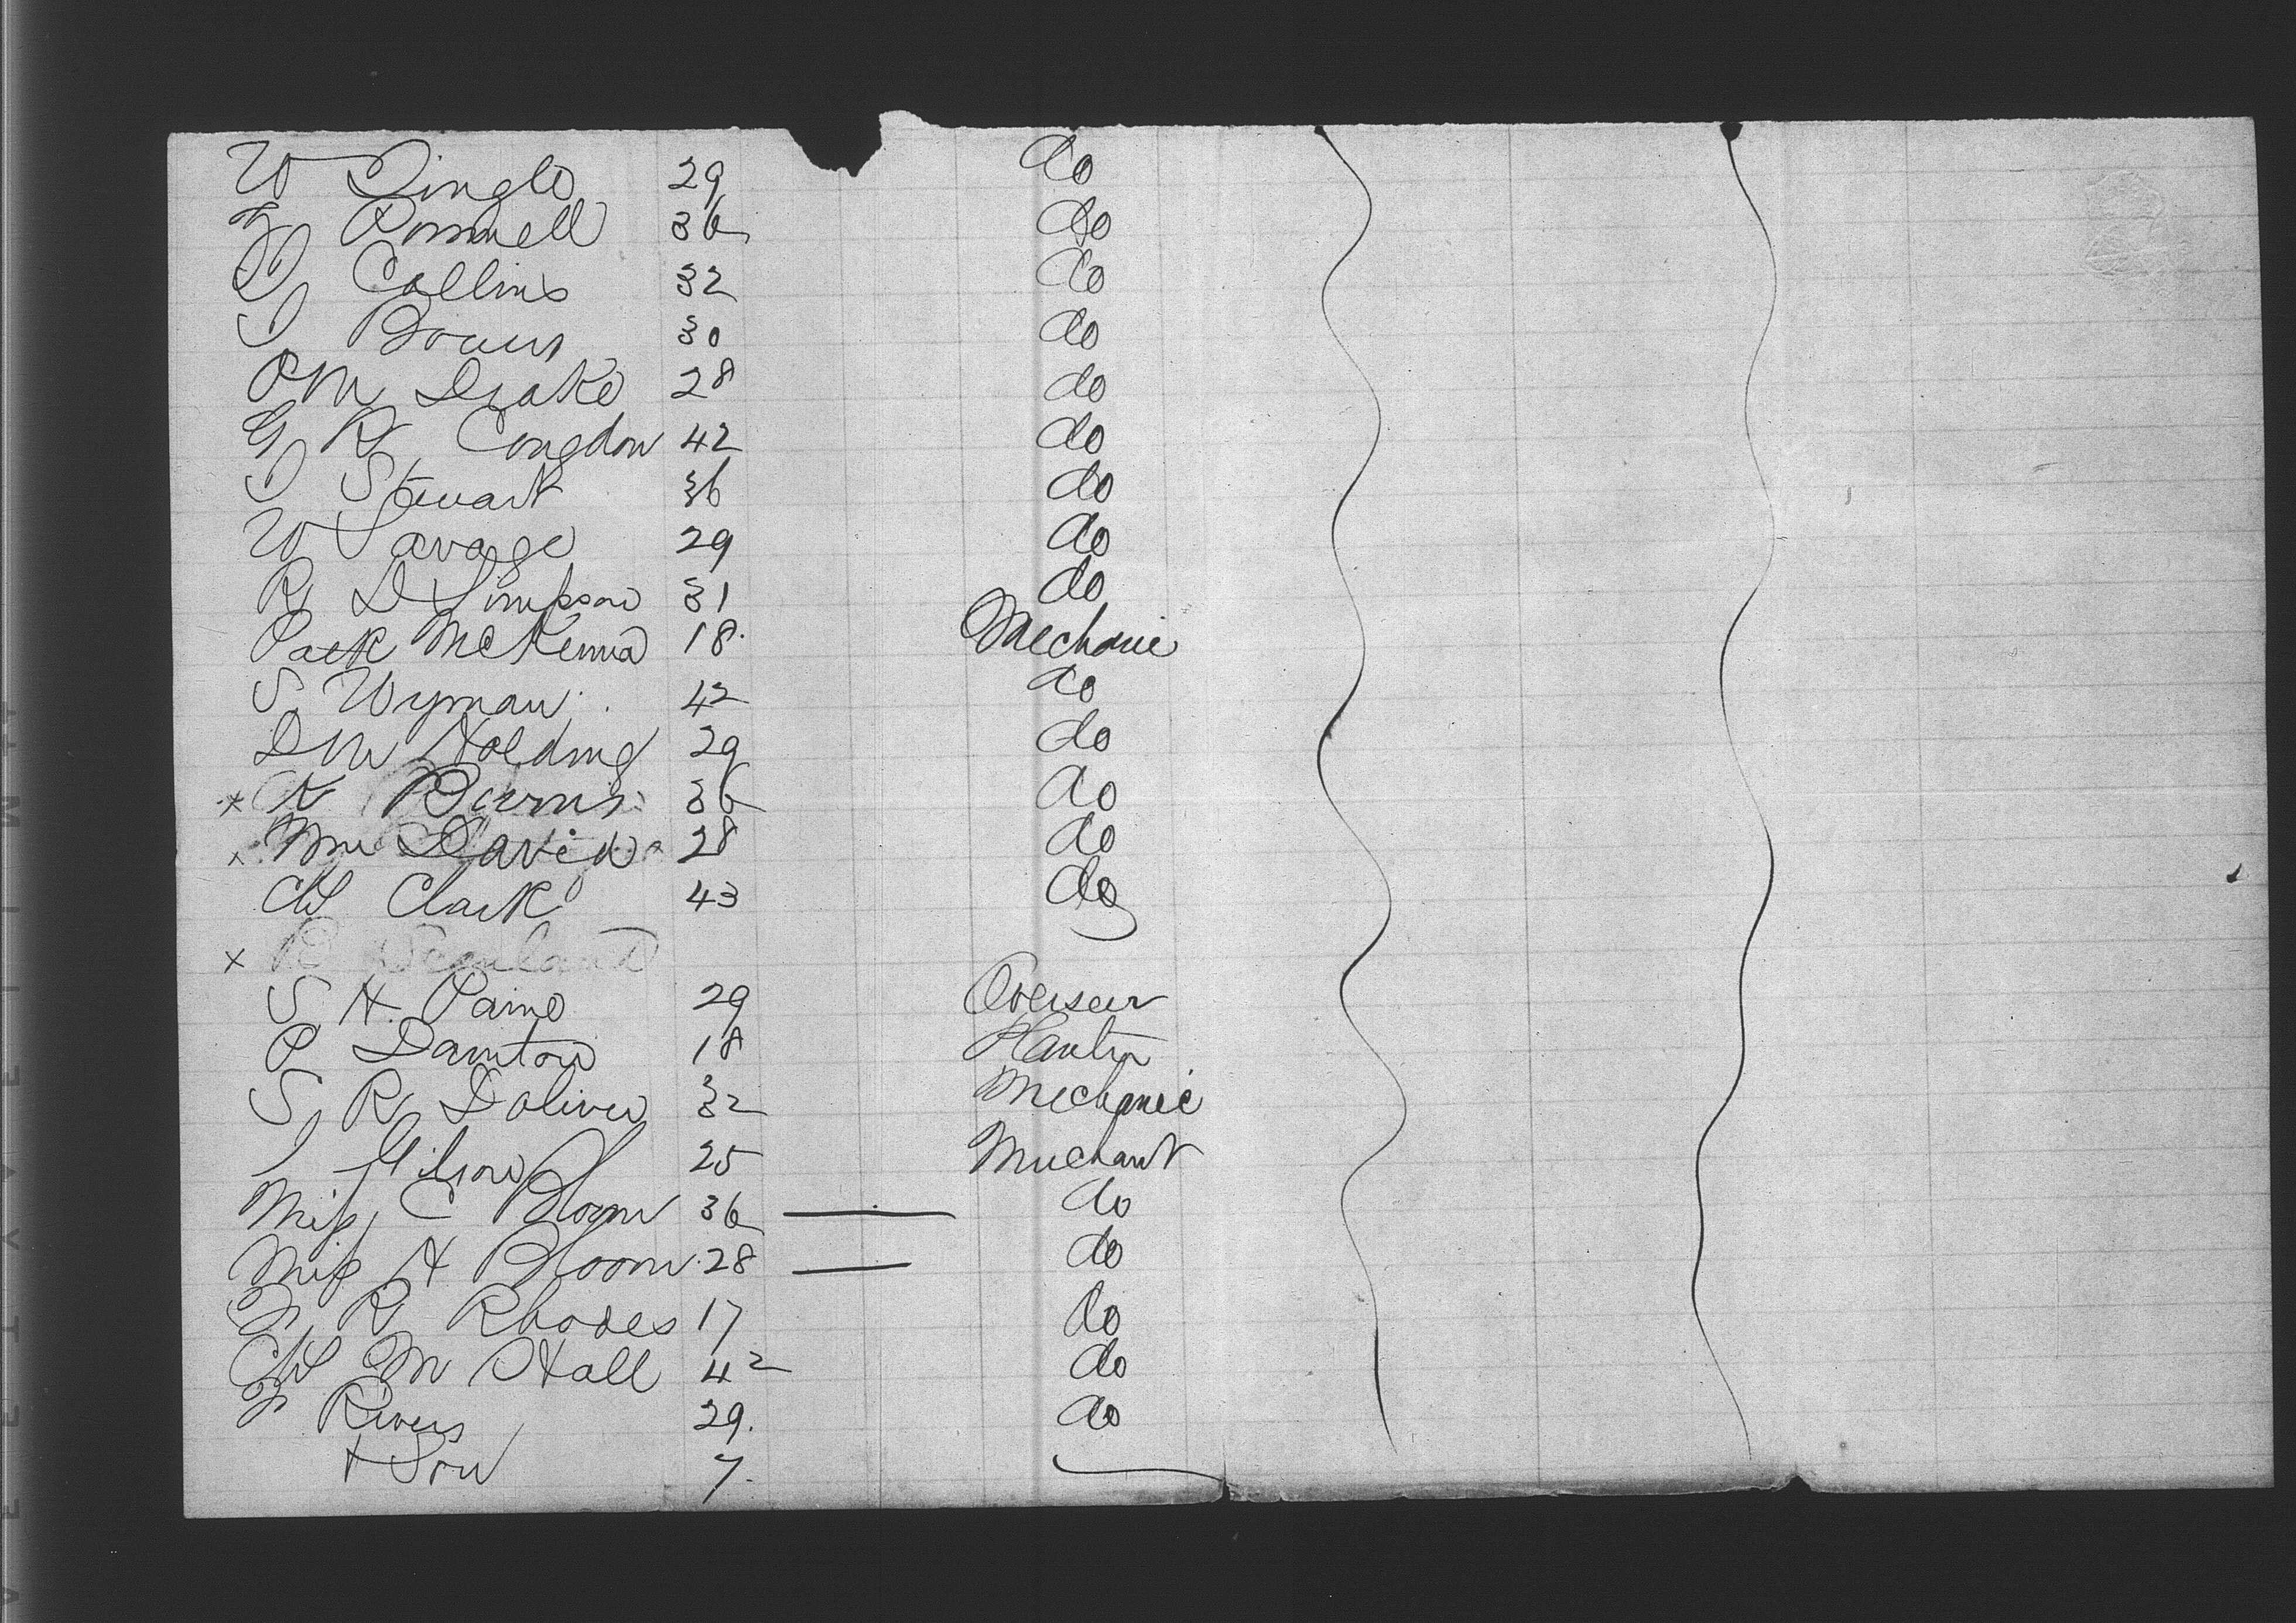 W Dingle 29 do
F Rommell 36 do
D Collins 32 do
J Brown 30 do
O M Drake 28 do
G R Congdon 42 do
J Stewart 36 do
W Savage 29 do
R D Simpson 31 do
Patk McKenna 18 Mechanic
S Wyman 42 do
D M Holding 29 do
x K Burns 36 do
x Wm David 28 do
Ch Clark 43 do
x R
S H Paine 29 Overseer
P Damton 18 Planter
S R Doliver 32 Mechanic
J Gilson 25 Merchant
Miss C Bloom 36 — do
Miss H Bloom 28 — do
F R Rhodes 17 do
Ch M Hall 42 do
F Rivers 29. do
+ Son 7.